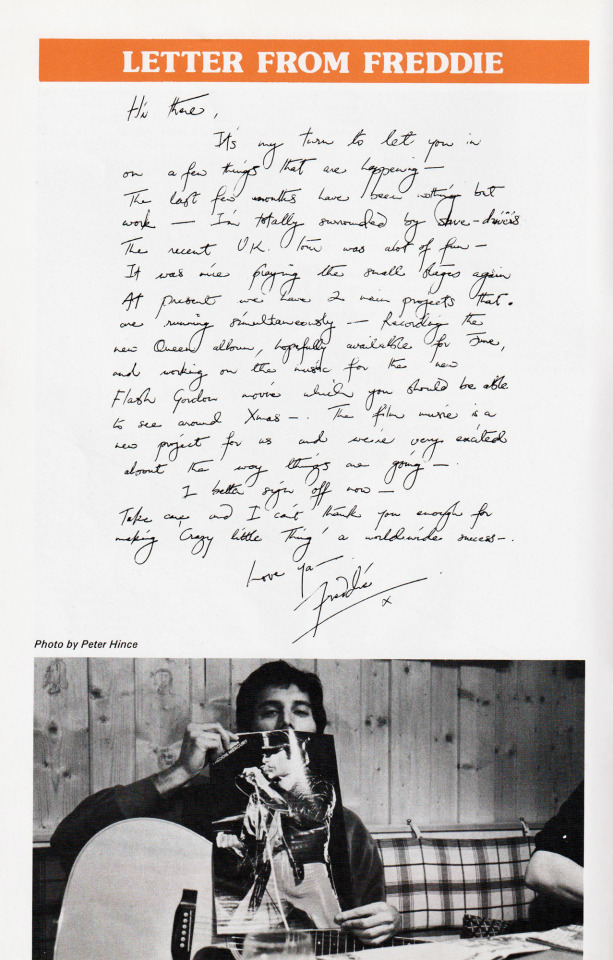 LETTER FROM FREDDIE
Hi there,
It's my turn to let you in
on a few things that are happening —
The last few months have been nothing but
work — I'm totally surrounded by slave-drivers
The recent U.K. Tour was alot of fun —
It was nice playing the small stages again
At present we have 2 main projects that.
are running simultaneously — Recording the
new Queen album, hopefully available for June,
and working on the music for the new
Flash Gordon movie which you should be able
to see around Xmas —. The film music is a
new project for us and we're very excited
about the way things are going —.
I better sign off now —
Take care, and I can't thank you enough for
making 'Crazy little Thing' a worldwide success —.
Love ya —
Freddie
x
Photo by Peter Hince